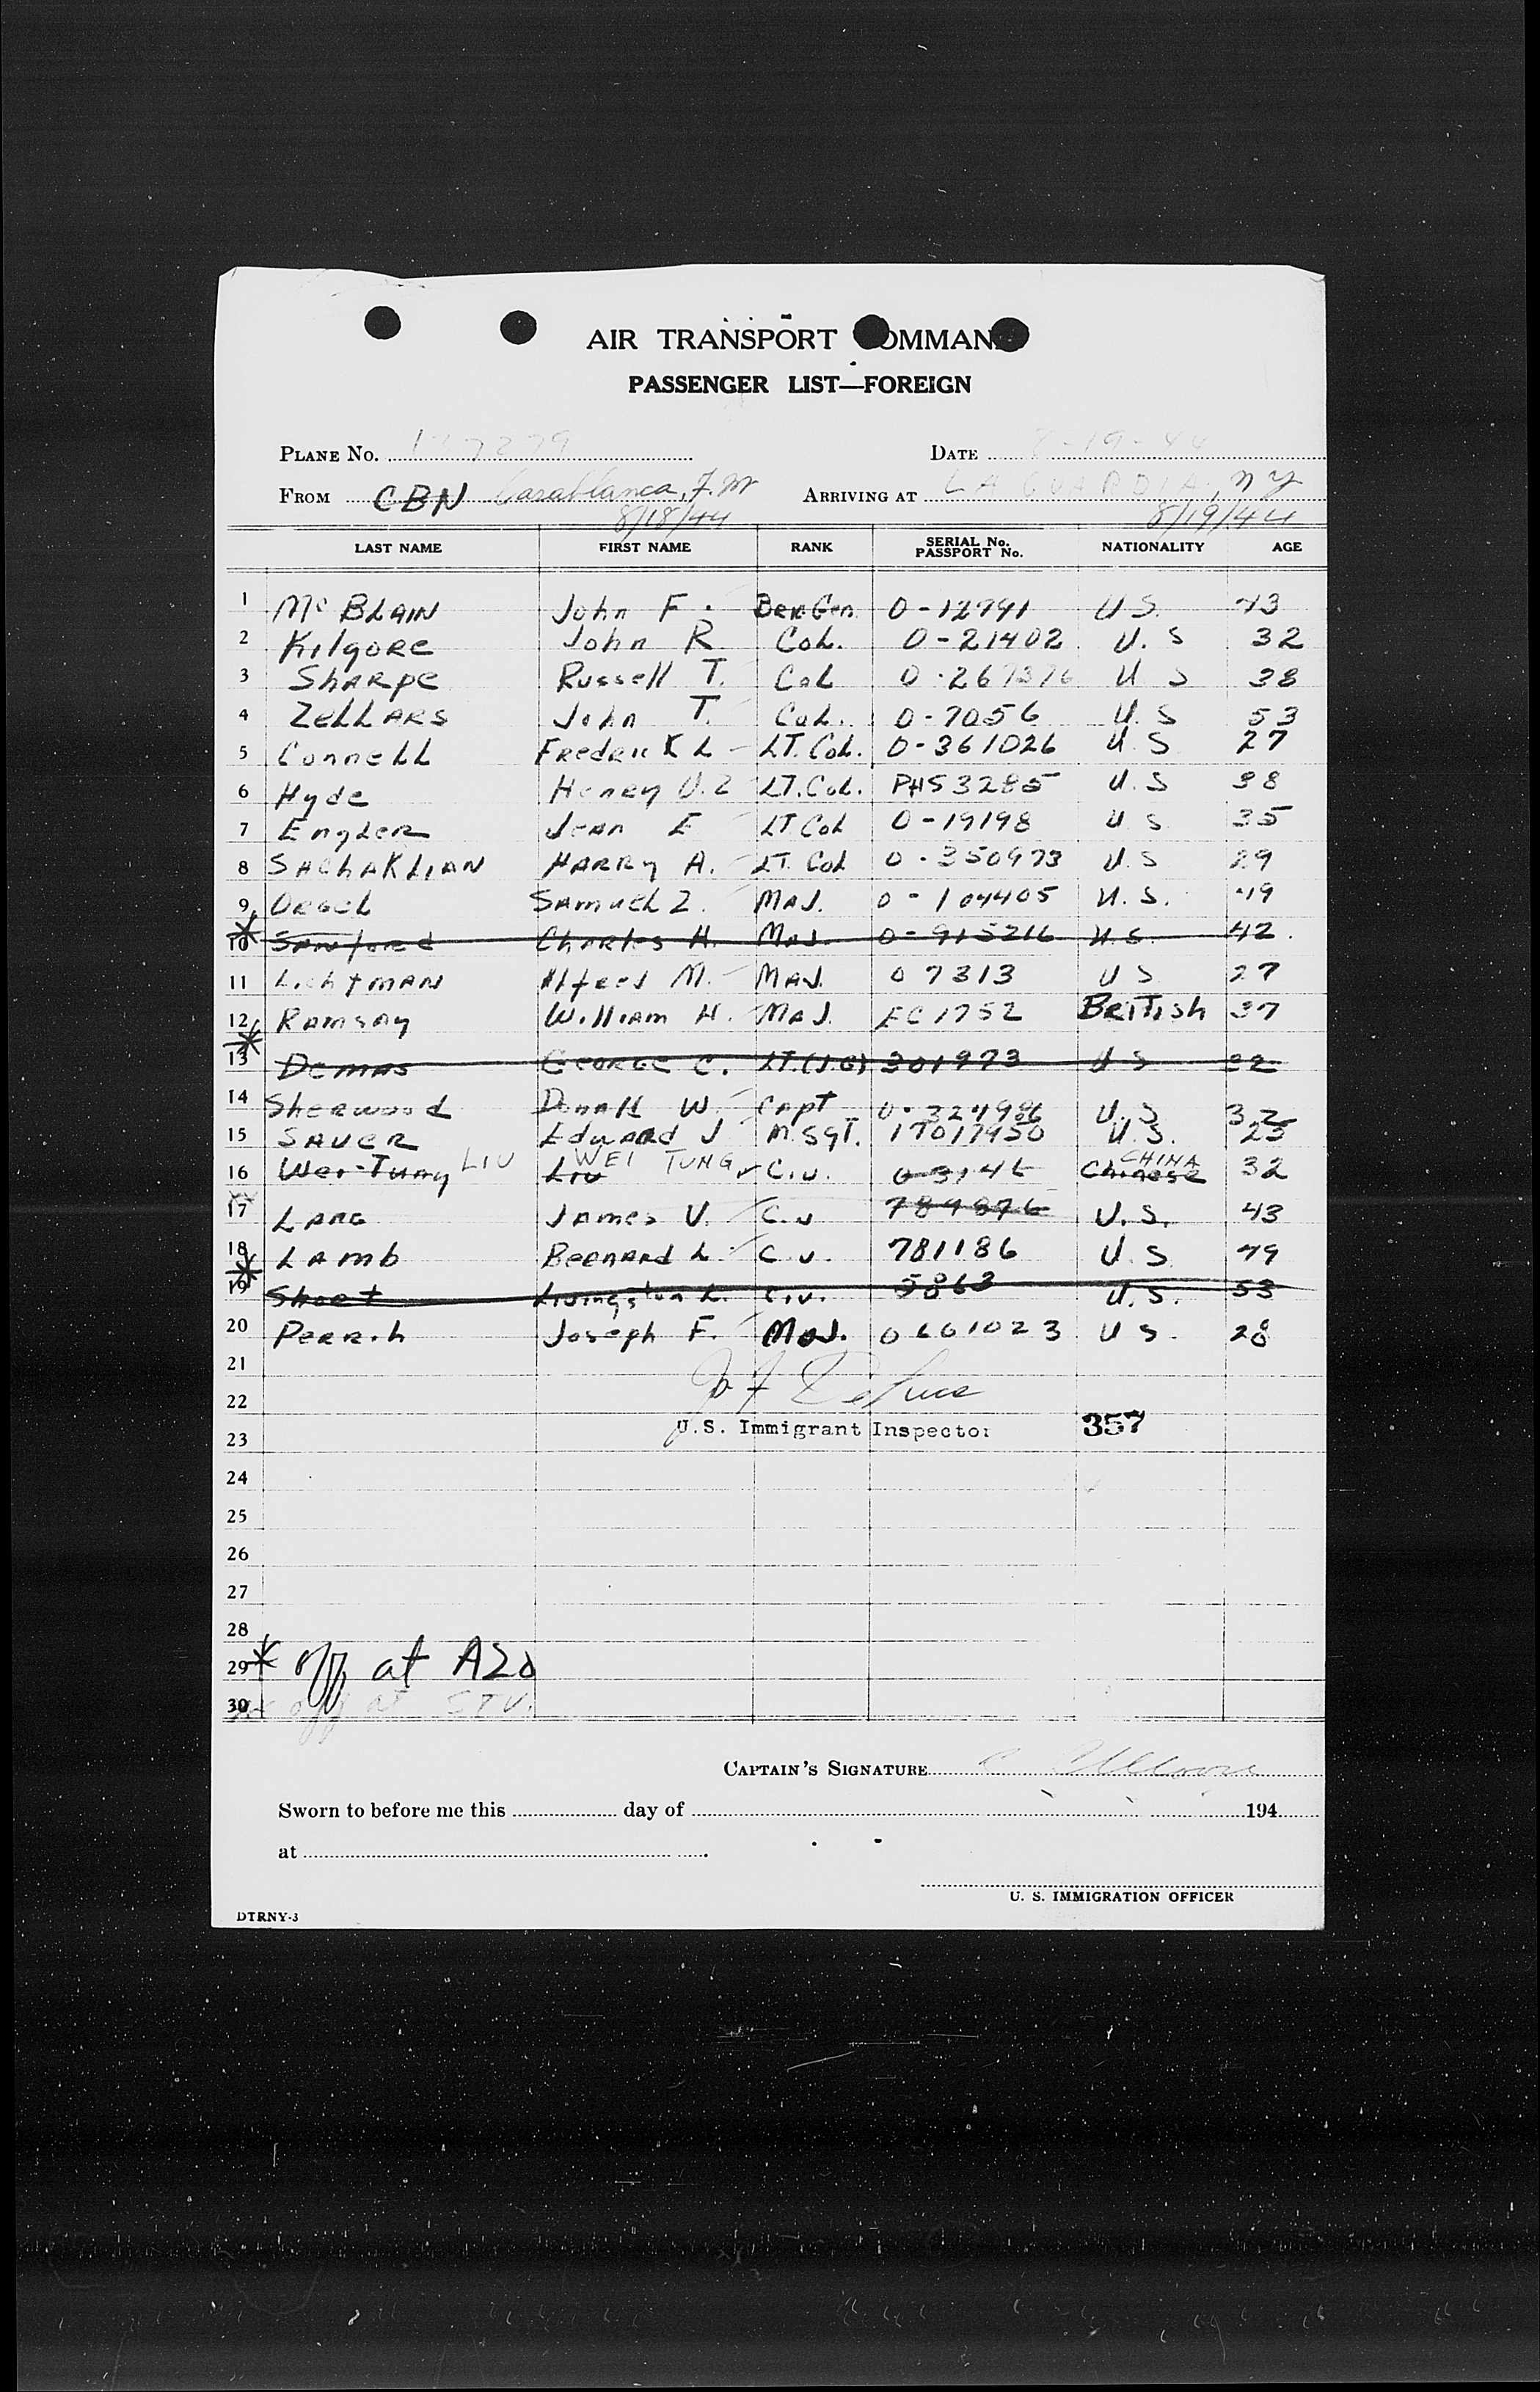 AIR TRANSPORT COMMAND
PASSENGER LIST—FOREIGN
PLANE No. DATE 8-19-44
FROM CBN Casablanca, F.M ARRIVING AT LA GUARDIA, NY
8/18/44 8/19/44
LAST NAME FIRST NAME RANK SERIAL No. PASSPORT No. NATIONALITY AGE
1 McBLAIN John F. Gen. O-12791 U S. 43
2 KilgORE John R CoL. O-21402 U. S 32
3 ShARpe Russell T. CoL U S 38
4 ZeLLARS John T. CoL. O-7056 U. S 53
5 ConneLL FredericK L LT. CoL. O-361026 U. S 27
6 Hyde Henry LT. CoL. PHS 3285 U. S 38
7 EngLer Jean E LT CoL O-19198 U S 35
8 SAChAKLIAN HARRy A. LT. CoL O-350973 U. S 29
9 ORgeL SAmueL Z. MAJ. O-104405 U. S. 49
10 SAnford ChARles H. MAJ. O-915216 U. S. 42
11 LichtmAN Alfred M. MAJ. O 7313 U S 27
12 RAmsAy William H. MAJ. EC 1752 BRiTish 37
13 DemAs GeORGe C. LT.(J.G) 301973 U S 22
14 Sherwood DonAld W. CApt O-324986 U. S 32
15 SAUER EdwARd J M. SgT. 17017950 U. S. 23
16 Wei-Tung LIU Liu WEI TUNG Civ. Chinese CHINA 32
17 LANG James V. Civ U. S. 43
18 LAmb BeRnARd L Civ. 781186 U. S 49
19 ShoRt Livingston L. Civ. 5863 U. S. 53
20 Joseph F. MAJ. U S. 28
21
22
U.S. Immigrant Inspector 357
23
24
25
26
27
28
29 * off at AZO
30 ** off at STV.
CAPTAIN'S SIGNATURE
Sworn to before me this day of 194
at
U. S. IMMIGRATION OFFICER
DTRNY-3